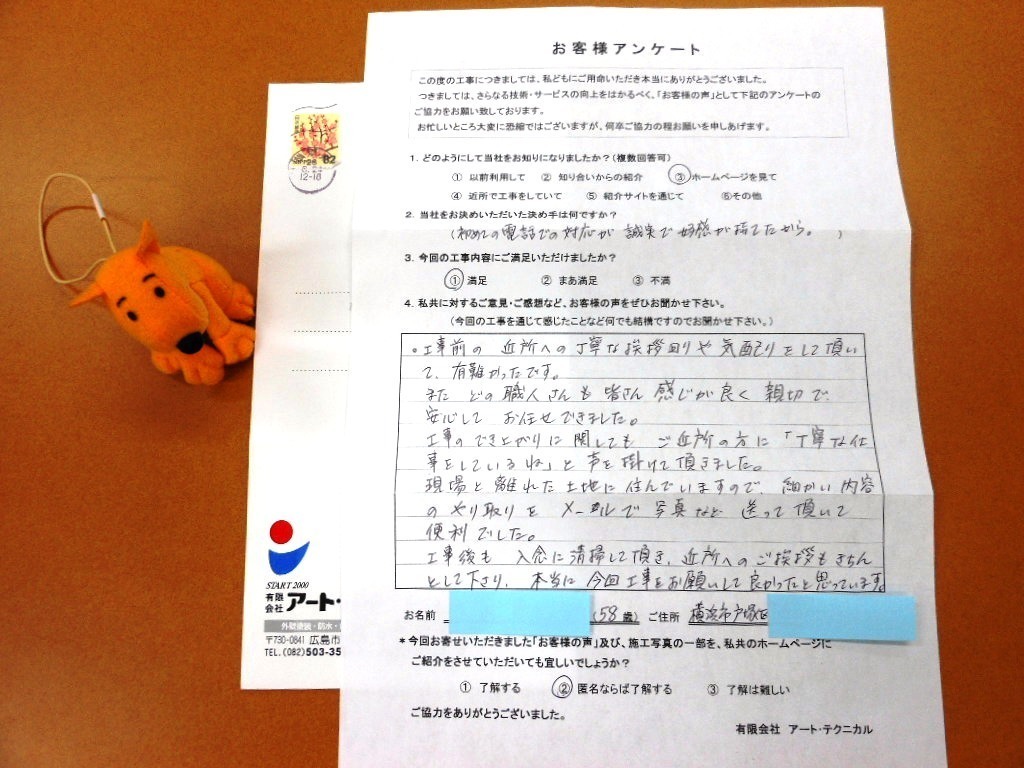 お客様アンケート
この度の工事につきましては、私どもにご用命いただき本当にありがとうございました。
つきましては、さらなる技術・サービスの向上をはかるべく、「お客様の声」として下記のアンケートの
ご協力をお願い致しております。
お忙しいところ大変に恐縮ではございますが、何卒ご協力の程お願いを申しあげます。
1. どのようにして当社をお知りになりましたか?(複数回答可)
① 以前利用して ② 知り合いからの紹介 ③ ホームページを見て
④ 近所で工事をしていて ⑤ 紹介サイトを通じて ⑥その他
2. 当社をお決めいただいた決め手は何ですか?
(初めての電話での対応が誠実で好感が持てたから。)
3. 今回の工事内容にご満足いただけましたか?
① 満足 ② まあ満足 ③ 不満
4. 私共に対するご意見・ご感想など、お客様の声をぜひお聞かせ下さい。
(今回の工事を通じて感じたことなど何でも結構ですのでお聞かせ下さい。)
。工事前の近所への丁寧な挨拶回りや気配りをして頂い
て、有難かったです。
また どの職人さんも皆さん感じが良く親切で、
安心してお任せできました。
工事のでき上がりに関してもご近所の方に「丁寧な仕
事をしているね」と声を掛けて頂きました。
現場と離れた土地に住んでいますので、細かい内容
のやり取りをメールで写真など送って頂いて
便利でした。
工事後も入念に清掃して頂き、近所へのご挨拶もきちん
として下さり、本当に今回工事をお願いして良かったと思っています。
お名前 (58歳) ご住所 横浜市戸塚区
*今回お寄せいただきました「お客様の声」及び、施工写真の一部を、私共のホームページに
ご紹介をさせていただいても宜しいでしょうか?
① 了解する ② 匿名ならば了解する ③ 了解は難しい
ご協力をありがとうございました。
有限会社 アート・テクニカル
82
12-18
START 2000
有限会社 アート・
外壁塗装・防水・
〒730-0841 広島市
TEL.(082)503-35